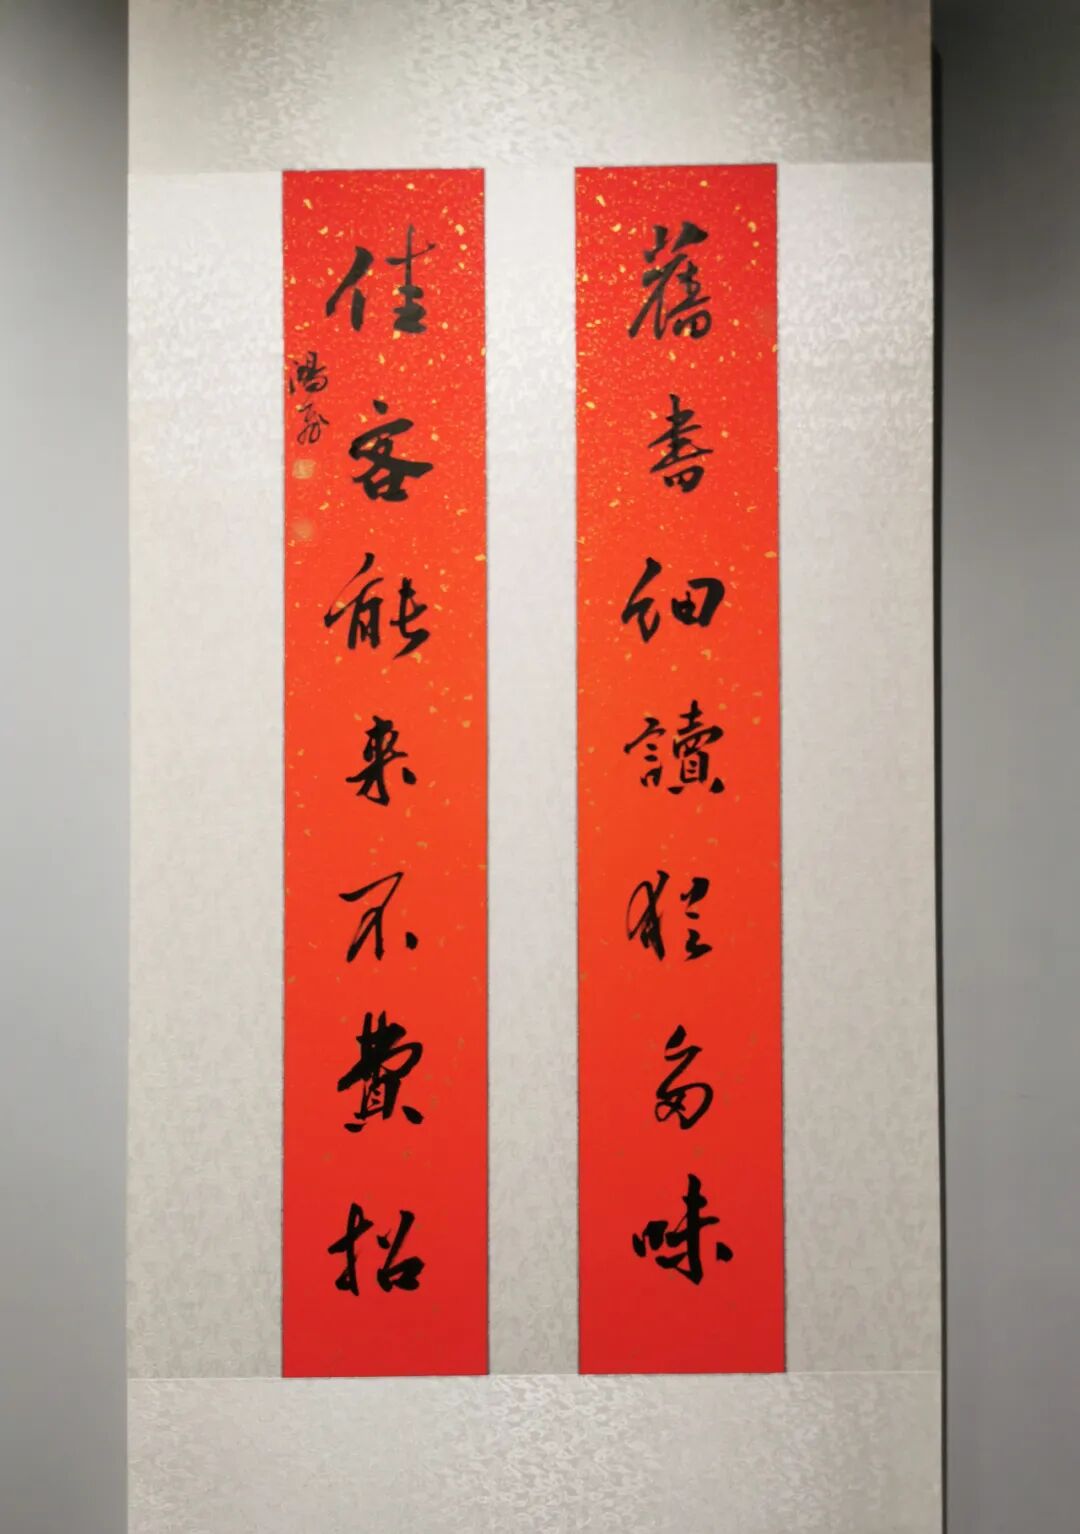 舊書細讀猶多味
佳客能来不費招
鴻